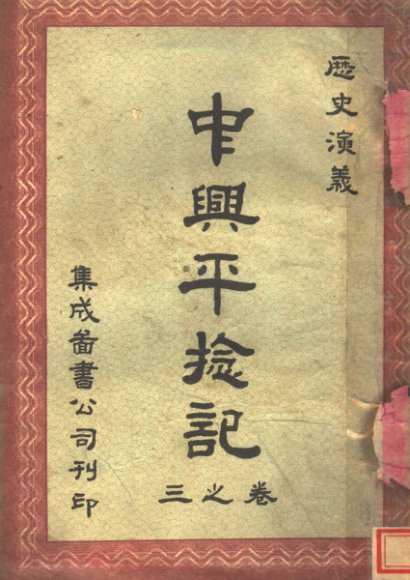 歷史演義
中興平捻記
卷之三
集成啚書公司刊印